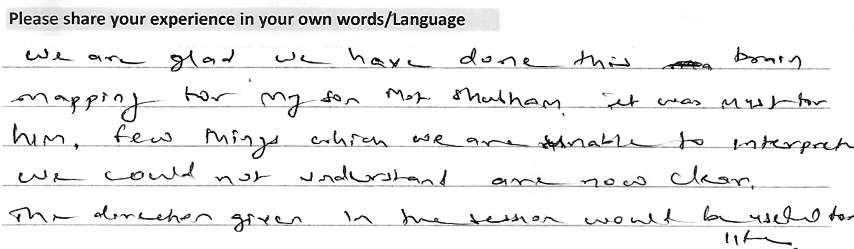 Please share your experience in your own words/Language
we are glad we have done this brain
mapping for my son Mst Shubham. it was must for
him. few things which we are unable to interpret
we could not understand are now clear.
The direction given in the session would be useful for
life.